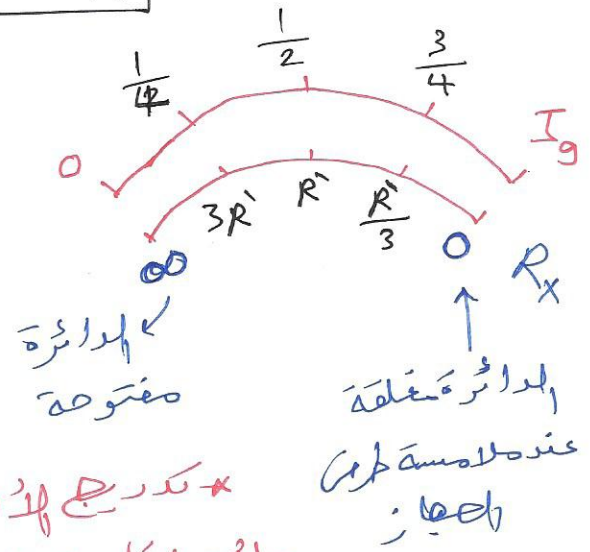 0 1/4 1/2 3/4 Ig
∞ 3R` R` R`/3 0 Rx
الدائرة
مفتوحة
الدائرة مغلقة
عند ملامسة طرفى
الجهاز
* تدريج